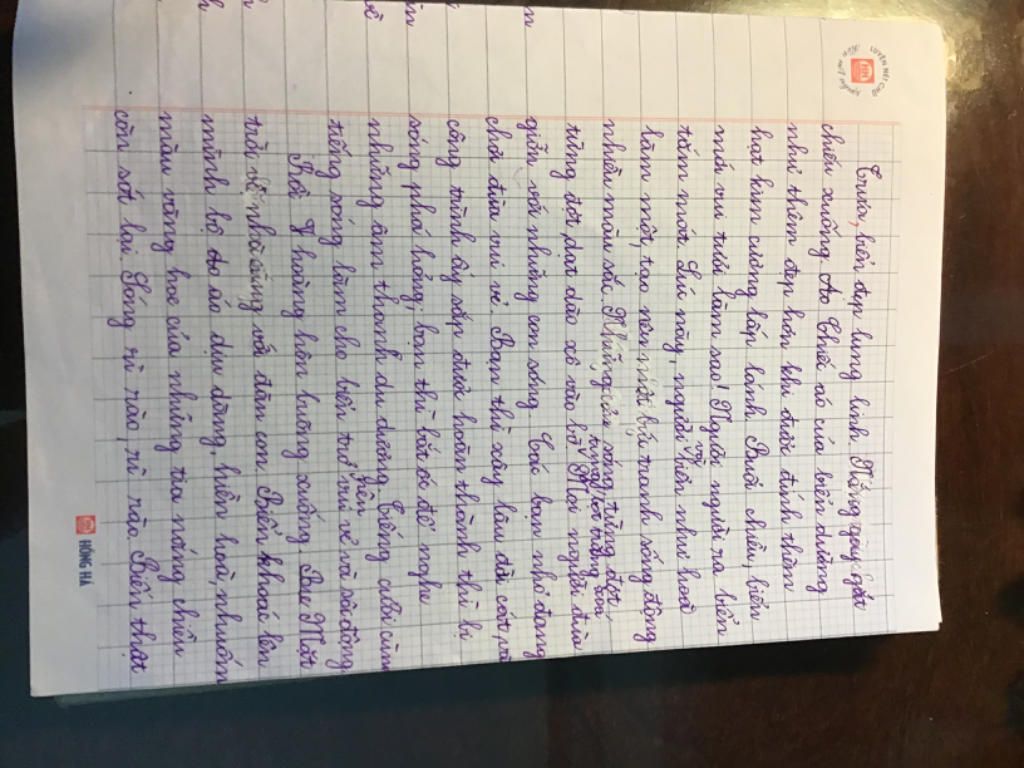 LUYỆN NÉT CHỮ
Rèn nết người
HH
Trưa, biển đẹp lung linh. Nắng gay gắt
chiếu xuống. Áo Chiếc áo của biển dường
như thêm đẹp hơn khi được đính thêm
hạt kim cương lấp lánh. Buổi chiều, biển
mới vui tươi làm sao! Người người ra biển
tắm mát. Lúc này, người và biển như hoà
làm một, tạo nên một bức tranh sống động
nhiều màu sắc. Những con sóng từng đợt,
từng đợt, dạt dào xô vào bờ tung bọt trắng xoá. Mọi người đùa
giỡn với những con sóng. Các bạn nhỏ đang
chơi đùa vui vẻ. Bạn thì xây lâu đài cát, mà
công trình ấy sắp được hoàn thành thì bị
sóng phá hỏng; bạn thì bắt ốc để nghe
những âm thanh du dương. Tiếng cười cùng
tiếng sóng làm cho biển trở nên vui vẻ và sôi động.
Rồi hoàng hôn buông xuống. Bac Mặt
trời về nhà cùng với đàn con. Biển khoác lên
mình bộ đo áo dịu dàng, hiền hoà, nhuốm
màu vàng hoe của những tia nắng chiều
còn sót lại. Sóng rì rào, rì rào. Biển thật
HỒNG HÀ